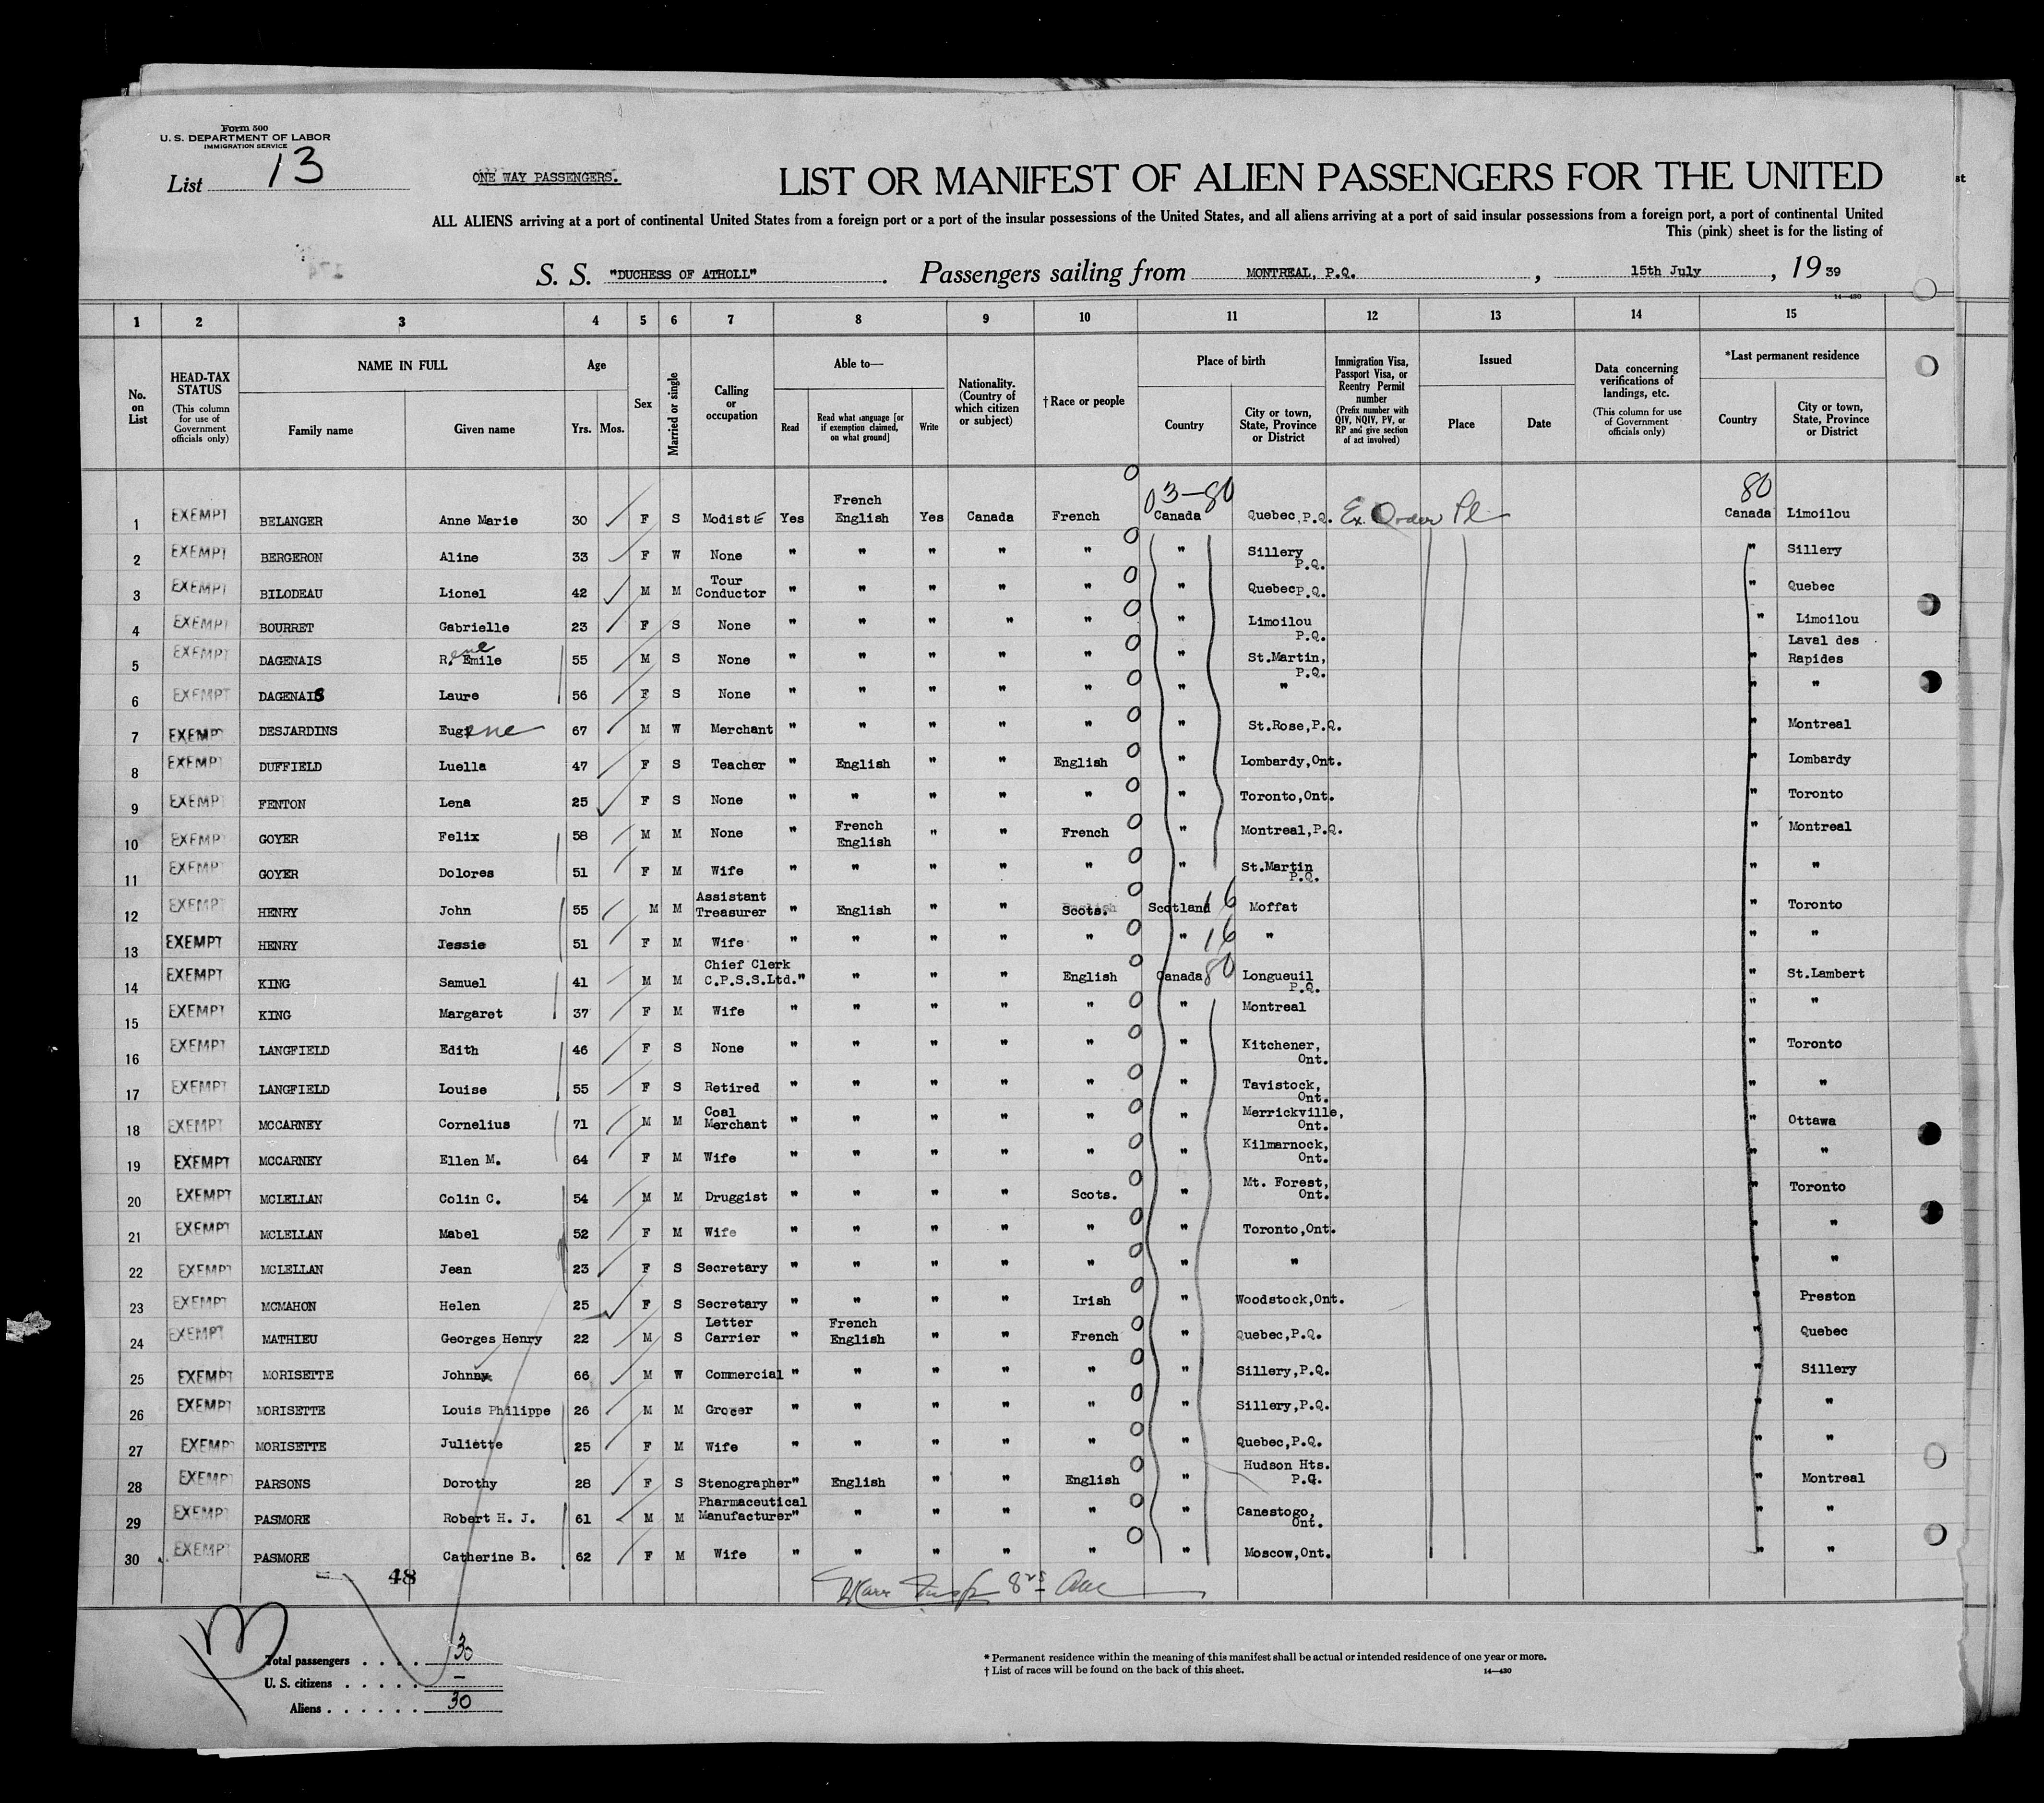 Form 500
U. S. DEPARTMENT OF LABOR
IMMIGRATION SERVICE
List 13
ONE WAY PASSENGERS.
LIST OR MANIFEST OF ALIEN PASSENGERS FOR THE UNITED
ALL ALIENS arriving at a port of continental United States from a foreign port or a port of the insular possessions of the United States, and all aliens arriving at a port of said insular possessions from a foreign port, a port of continental United
This (pink) sheet is for the listing of
S. S. "DUCHESS OF ATHOLL". Passengers sailing from MONTREAL, P.Q., 15th July, 19 39
14—430
1 2 3 4 5 6 7 8 9 10 11 12 13 14 15
No. on List
HEAD-TAX STATUS (This column for use of Government officials only)
NAME IN FULL
Family name Given name
Age
Yrs. Mos.
Sex
Married or single
Calling or occupation
Able to—
Read
Read what language [or if exemption claimed, on what ground]
Write
Nationality. (Country of which citizen or subject)
†Race or people
Place of birth
Country
City or town, State, Province or District
Immigration Visa, Passport Visa, or Reentry Permit number (Prefix number with QIV, NQIV, PV, or RP and give section of act involved)
Issued
Place Date
Data concerning verifications of landings, etc. (This column for use of Government officials only)
*Last permanent residence
Country
City or town, State, Province or District
03-80 80
1 EXEMPT BELANGER Anne Marie 30 F S Modiste Yes French English Yes Canada French Canada Quebec, P.Q. Ex. Order Canada Limoilou
2 EXEMPT BERGERON Aline 33 F W None " " " " " " Sillery P.Q. " Sillery
3 EXEMPT BILODEAU Lionel 42 M M Tour Conductor " " " " " " Quebec P.Q. " Quebec
4 EXEMPT BOURRET Gabrielle 23 F S None " " " " " " Limoilou P.Q. " Limoilou
5 EXEMPT DAGENAIS R. ene Emile 55 M S None " " " " " " St.Martin, P.Q. " Laval des Rapides
6 EXEMPT DAGENAIS Laure 56 F S None " " " " " " " " "
7 EXEMPT DESJARDINS Eugene 67 M W Merchant " " " " " " St.Rose,P.Q. " Montreal
8 EXEMPT DUFFIELD Luella 47 F S Teacher " English " " English " Lombardy,Ont. " Lombardy
9 EXEMPT FENTON Lena 25 F S None " " " " " " Toronto,Ont. " Toronto
10 EXEMPT GOYER Felix 58 M M None " French English " " French " Montreal,P.Q. " Montreal
11 EXEMPT GOYER Dolores 51 F M Wife " " " " " " St.Martin P.Q. " "
12 EXEMPT HENRY John 55 M M Assistant Treasurer " English " " Scots. Scotland 16 Moffat " Toronto
13 EXEMPT HENRY Jessie 51 F M Wife " " " " " " 16 " " "
14 EXEMPT KING Samuel 41 M M Chief Clerk C.P.S.S.Ltd. " " " " English Canada 80 Longueuil P.Q. " St.Lambert
15 EXEMPT KING Margaret 37 F M Wife " " " " " " Montreal " "
16 EXEMPT LANGFIELD Edith 46 F S None " " " " " " Kitchener, Ont. " Toronto
17 EXEMPT LANGFIELD Louise 55 F S Retired " " " " " " Tavistock, Ont. " "
18 EXEMPT MCCARNEY Cornelius 71 M M Coal Merchant " " " " " " Merrickville, Ont. " Ottawa
19 EXEMPT MCCARNEY Ellen M. 64 F M Wife " " " " " " Kilmarnock, Ont. " "
20 EXEMPT MCLELLAN Colin C. 54 M M Druggist " " " " Scots. " Mt. Forest, Ont. " Toronto
21 EXEMPT MCLELLAN Mabel 52 F M Wife " " " " " " Toronto,Ont. " "
22 EXEMPT MCLELLAN Jean 23 F S Secretary " " " " " " " " "
23 EXEMPT MCMAHON Helen 25 F S Secretary " " " " Irish " Woodstock,Ont. " Preston
24 EXEMPT MATHIEU Georges Henry 22 M S Letter Carrier " French English " " French " Quebec,P.Q. " Quebec
25 EXEMPT MORISETTE Johnny 66 M W Commercial " " " " " " Sillery,P.Q. " Sillery
26 EXEMPT MORISETTE Louis Philippe 26 M M Grocer " " " " " " Sillery,P.Q. " "
27 EXEMPT MORISETTE Juliette 25 F M Wife " " " " " " Quebec,P.Q. " "
28 EXEMPT PARSONS Dorothy 28 F S Stenographer " English " " English " Hudson Hts. P.Q. " Montreal
29 EXEMPT PASMORE Robert H. J. 61 M M Pharmaceutical Manufacturer " " " " " " Canestogo, Ont. " "
30 EXEMPT PASMORE Catherine B. 62 F M Wife " " " " " " Moscow,Ont. " "
48
Total passengers . . . . 30
U. S. citizens . . . . . —
Aliens . . . . . . 30
* Permanent residence within the meaning of this manifest shall be actual or intended residence of one year or more.
† List of races will be found on the back of this sheet. 14—430